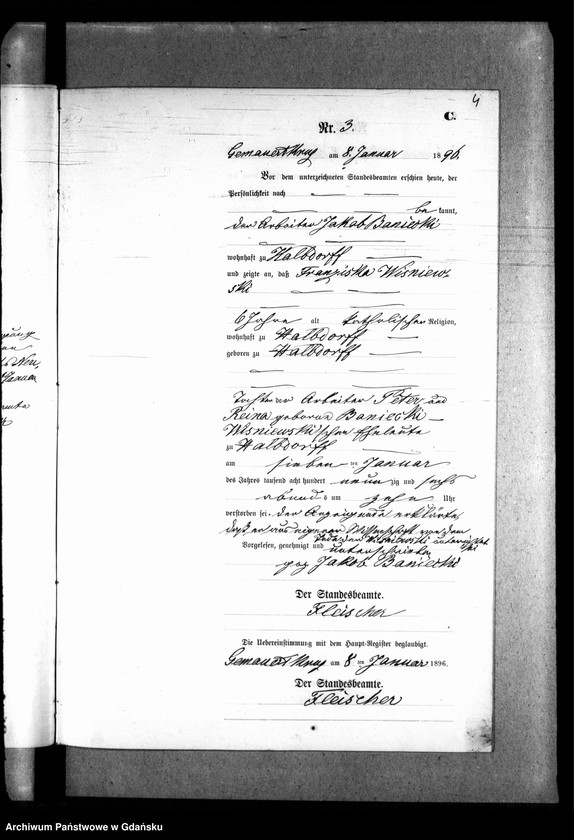 4
C.
Nr. 3.
Gemauert Krug am 8. Januar 1896.
Vor dem unterzeichneten Standesbeamten erschien heute, der
Persönlichkeit nach
be kannt,
der Arbeiter Jakob Baniecki
wohnhaft zu Kalbdorff
und zeigte an, daß Franziska Wisniew
ski
6 Jahre alt katholischer Religion,
wohnhaft zu Walbdorff
geboren zu Walbdorff
Tochter der Arbeiter Peter und
Reina geborene Baniecki
Wisniewski'schen Eheleute
zu Walbdorff
am sieben ten Januar
des Jahres tausend acht hundert neun zig und sechs
abends um zehn Uhr
verstorben sei. Der Anzeigende erklärte
daß er aus eigener Wissenschaft von dem
Tode der Wisniewski unterrichtet
sei
Vorgelesen, genehmigt und unterschrieben
gez Jakob Baniecki
Der Standesbeamte.
Fleischer
Die Uebereinstimmung mit dem Haupt-Register beglaubigt.
Gemauert Krug am 8 ten Januar 1896.
Der Standesbeamte.
Fleischer
Archiwum Państwowe w Gdańsku